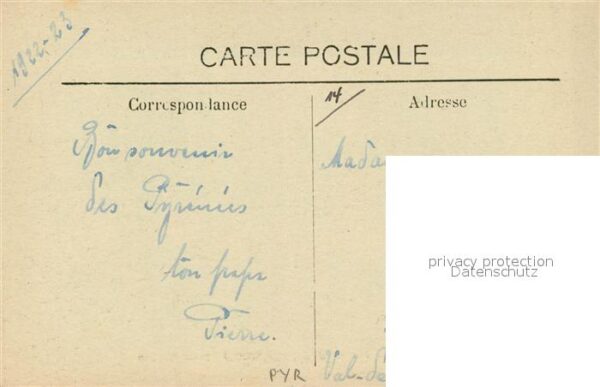 1922-23
CARTE POSTALE
Correspondance
14
Adresse
Bon souvenir
des Pyrénées
ton papa
Pierre.
Mada
privacy protection
Datenschutz
Val-de
PYR